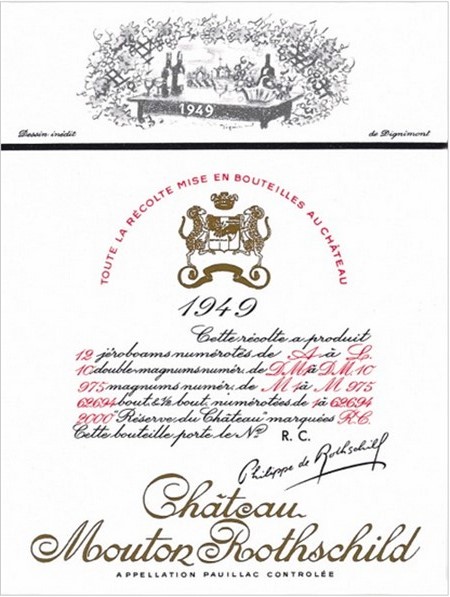 1949
Dessin inédit
de Dignimont
TOUTE LA RÉCOLTE MISE EN BOUTEILLES AU CHÂTEAU
1949
Cette récolte a produit
12 jéroboams numérotés de A à L
10 double-magnums numér. de DM1 à DM10
975 magnums numér. de M1 à M 975
62694 bout. & ½ bout. numérotées de 1 à 62694
2000 "Réserve du Château" marquées R.C.
Cette bouteille porte le No R. C.
Philippe de Rothschild
Château
Mouton Rothschild
APPELLATION PAUILLAC CONTROLÉE